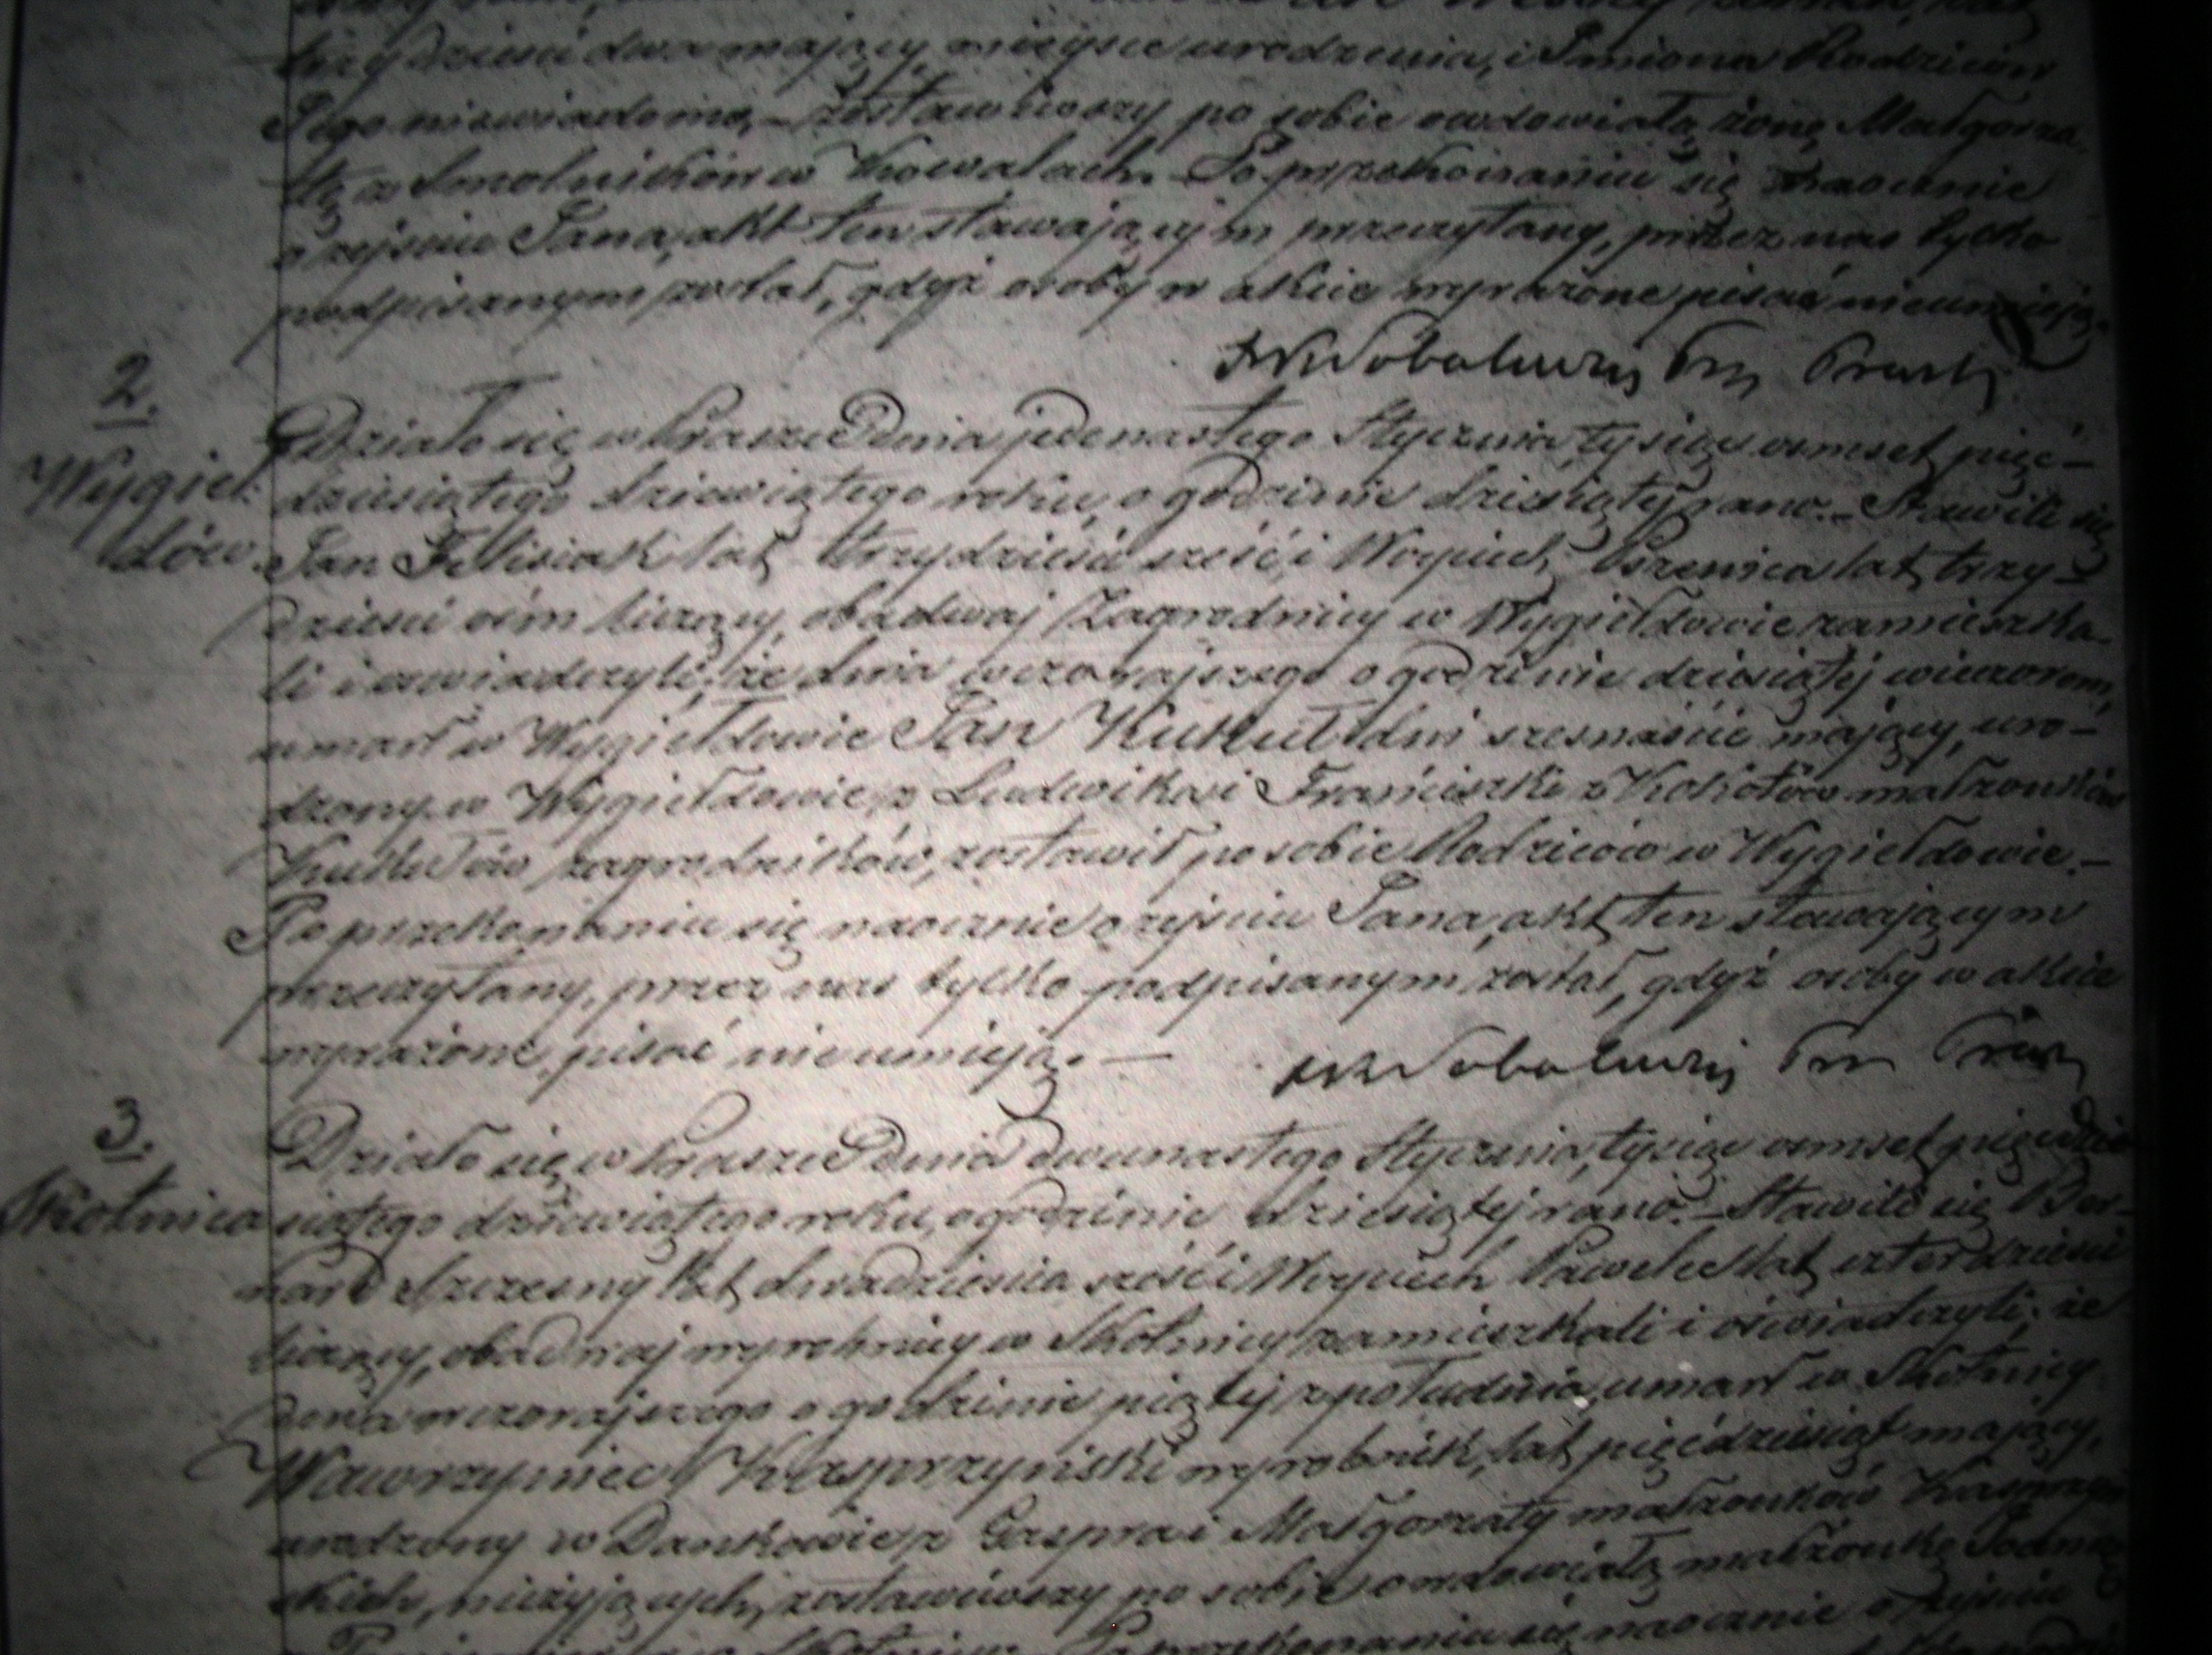 trzydzieści dwa mający, miejsce urodzenia, i Imiona Rodziców
Jego niewiadome, – zostawiwszy po sobie owdowiałą żonę Małgorza-
tę z Smolników w Kowalach. – Po przekonaniu się naocznie
o zejściu Jana, akt ten stawającym przeczytany, przez nas tylko
podpisanym został, gdyż osoby w akcie wyrażone pisać nieumieją.
2.
Wygieł-
dów.
Działo się w Praszce Dnia jedenastego Stycznia tysiąc ośmset pięć-
dziesiątego dziewiątego roku, o godzinie dziesiątej rano. – Stawili się
Jan Felisiak lat trzydzieści sześć, i Woyciech Pszenica lat trzy-
dzieści ośm liczący, obadwaj Zagrodnicy w Wygiełdowie zamieszka-
li i oswiadczyli; że dnia wczorajszego o godzinie dziesiątej wieczorem,
umarł w Wygiełdowie Jan Kukuł dni szesnaście mający, uro-
dzony w Wygiełdowie, z Ludwika i Franciszki z Kokotów małżonków
Kukułów zagrodników, zostawił po sobie Rodziców w Wygiełdowie. –
Po przekonaniu się naocznie o zejściu Jana, akt ten stawającym
przeczytany, przez nas tylko podpisanym został, gdyż osoby w akcie
wyrażone, pisać nieumieją. –
3.
Skotnica
Działo się w Praszce Dnia Dwunastego Stycznia, tysiąc ośmset pięćdzie-
siątego dziewiątego roku, o godzinie dziesiątej rano. – Stawili się Ber-
nard Szczesny lat dwadzieścia sześć i Woyciech Pawelec lat czterdzieści
liczący, obadwaj wyrobnicy w Skotnicy zamieszkali i oświadczyli; że
dnia wczorajszego o godzinie piątej z południa, umarł w Skotnicy
Wawrzyniec Kasprzyński wyrobnik, lat pięćdziesiąt mający,
urodzony w Dankowie, z Gaspra i Małgorzaty małżonków Kasprzyń-
skich, nieżyjących, zostawiwszy po sobie owdowiałą małżonkę
Po przekonaniu się naocznie o zejściu